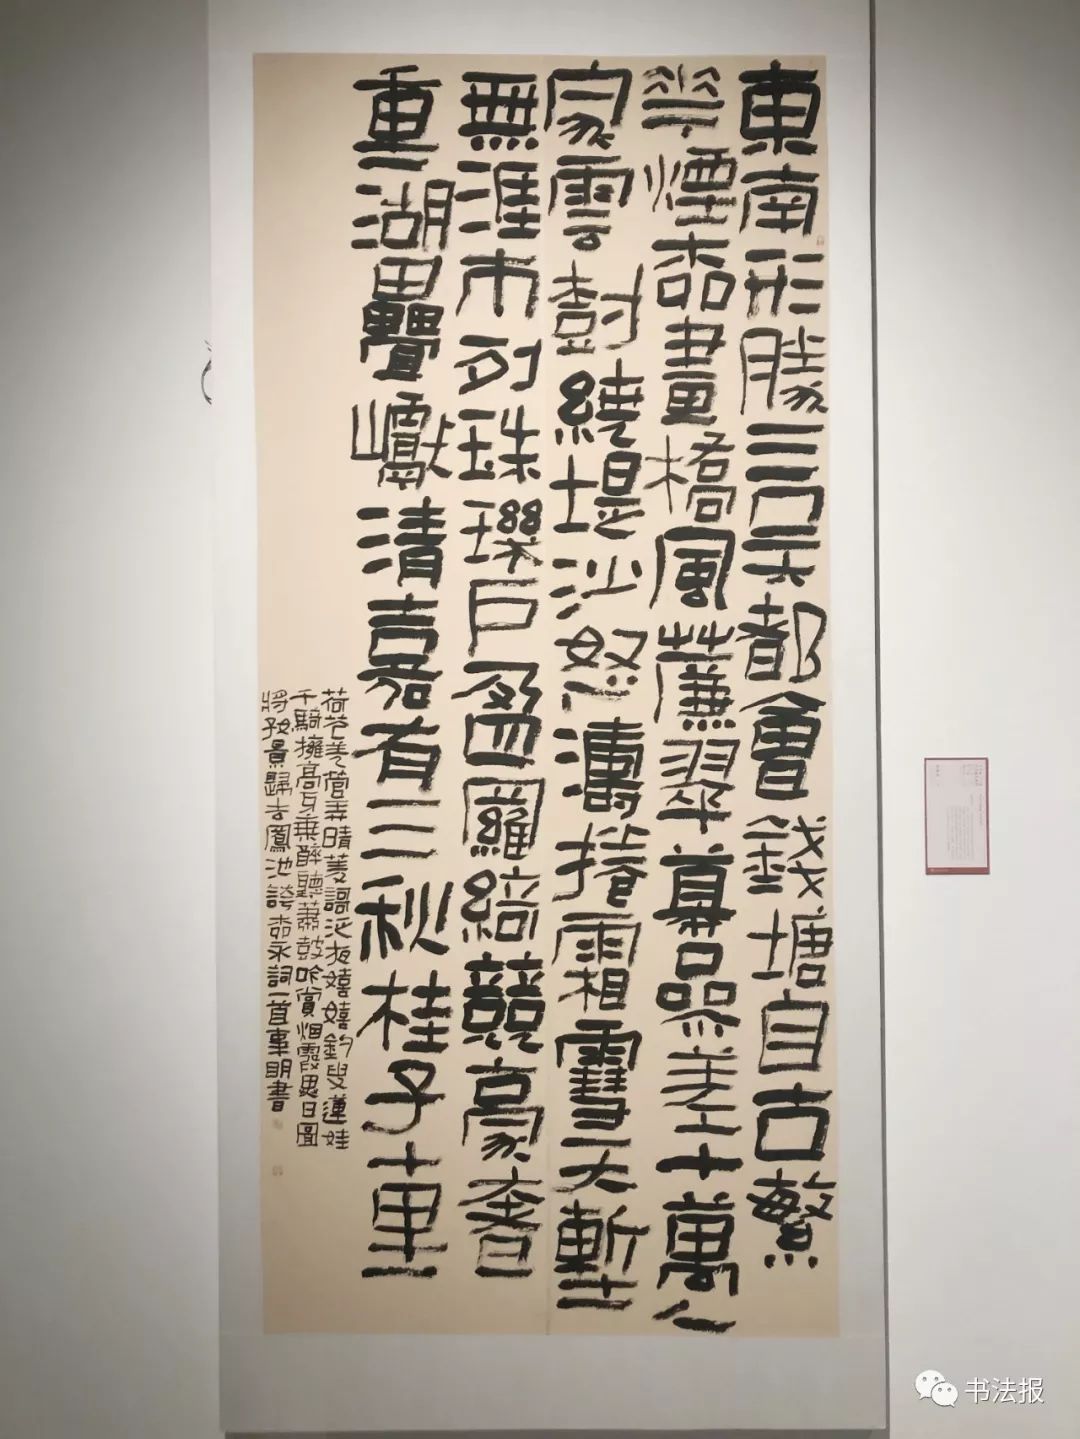 東南形勝三吴都會錢塘自古繁
華煙柳畫橋風簾翠幕參差十萬人
家雲樹繞堤沙怒濤捲霜雪天塹
無涯市列珠璣戶盈羅綺競豪奢
重湖疊巘清嘉有三秋桂子十里
荷花羌管弄晴菱謌泛夜嬉嬉釣叟蓮娃
千騎擁高牙乘醉聽蕭鼓吟賞烟霞異日圖
將好景歸去鳳池誇柳永詞一首明書
书法报